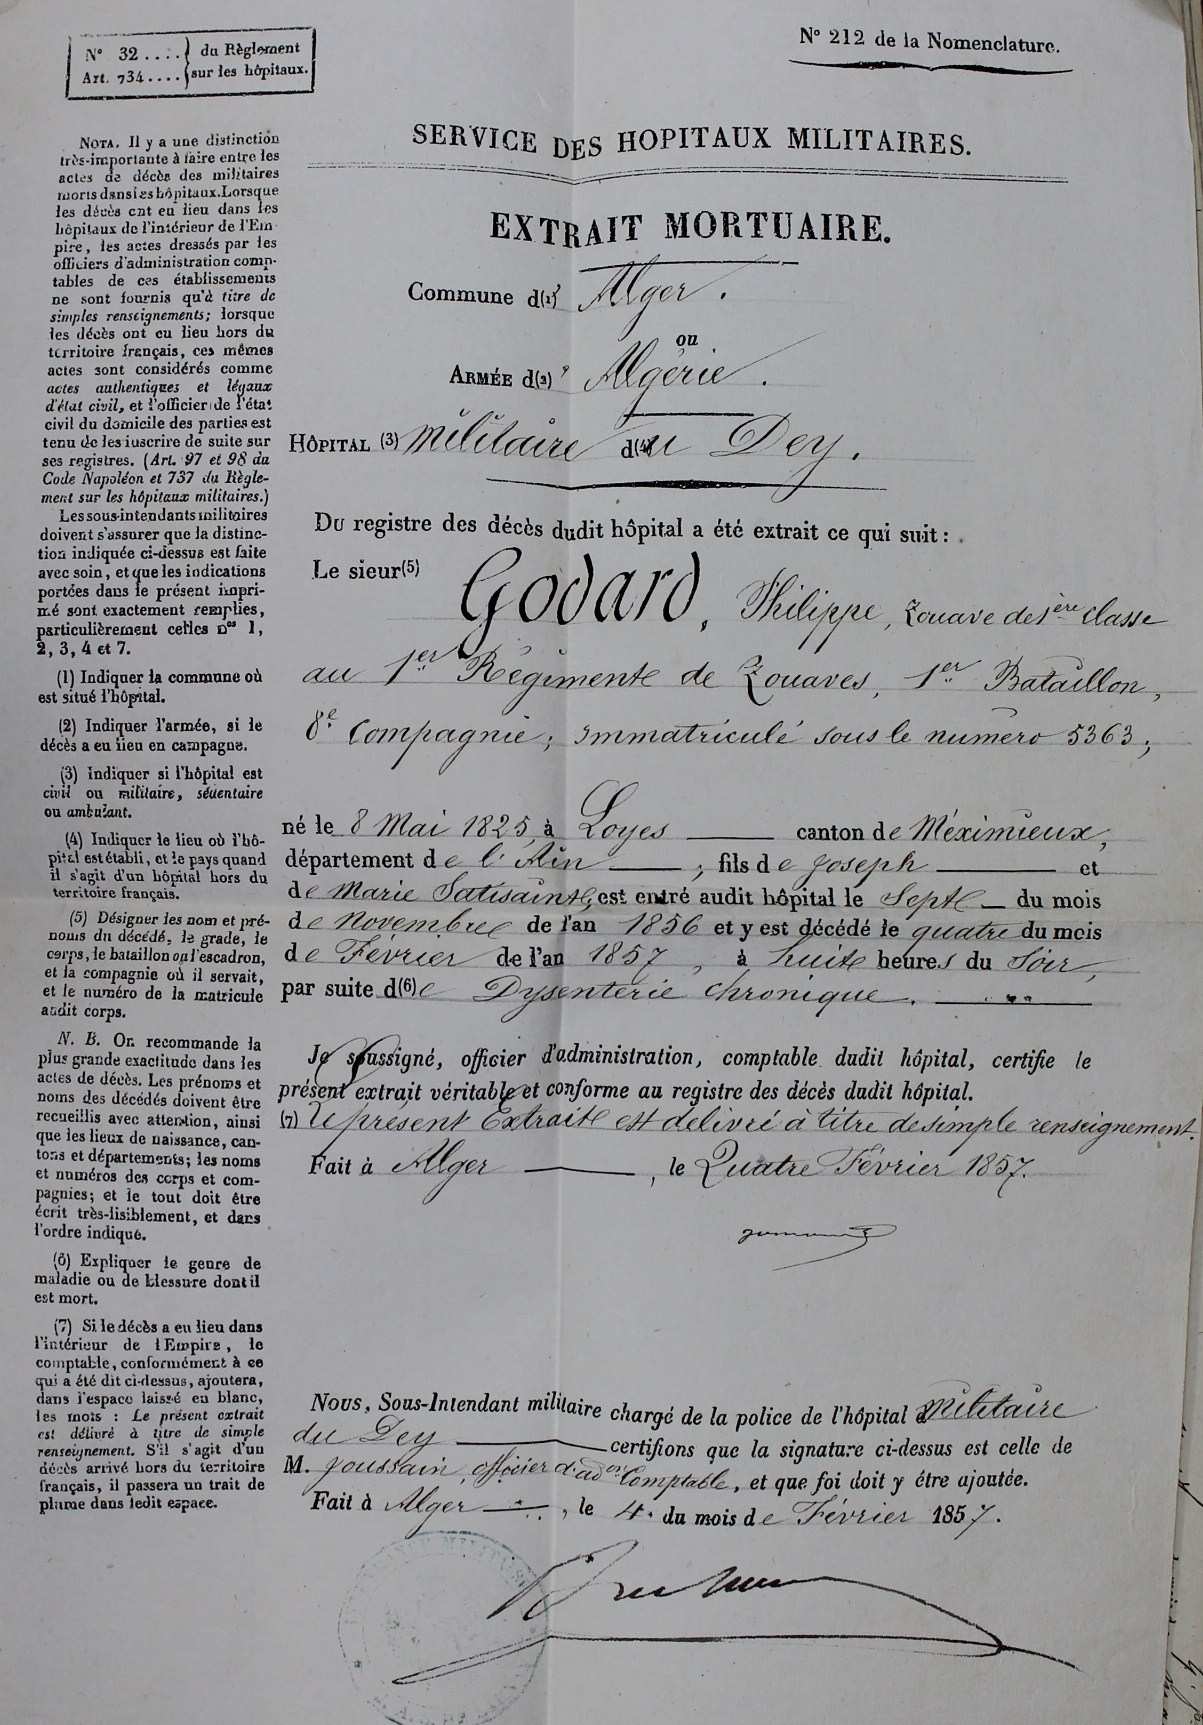 N° 32 .... du Règlement
Art. 734 .... sur les hôpitaux.
N° 212 de la Nomenclature.
SERVICE DES HOPITAUX MILITAIRES.
EXTRAIT MORTUAIRE.
Commune d(1)' Alger.
ou
ARMÉE d(2)' Algérie.
HÔPITAL (3) militaire d(4)u Dey.
Du registre des décès dudit hôpital a été extrait ce qui suit :
Le sieur(5) Godard, Philippe, Zouave de 1ère classe
au 1er Régiment de Zouaves, 1er Bataillon,
8e Compagnie; immatriculé sous le numéro 5363;
né le 8 Mai 1825, à Loyes canton de Méximieux,
département de l'Ain ; fils de Joseph et
de Marie est entré audit hôpital le Sept du mois
de Novembre de l'an 1856 et y est décédé le quatre du mois
de Février de l'an 1857, à huit heures du Soir,
par suite d(6)e Dysenterie chronique.
Je soussigné, officier d'administration, comptable dudit hôpital, certifie le
présent extrait véritable et conforme au registre des décès dudit hôpital.
(7) Le présent Extrait est délivré à titre de simple renseignement.
Fait à Alger, le Quatre Février 1857.
Nous, Sous-Intendant militaire chargé de la police de l'hôpital militaire
du Dey certifions que la signature ci-dessus est celle de
M. Joussain, officier d'adon Comptable, et que foi doit y être ajoutée.
Fait à Alger, le 4. du mois de Février 1857.
NOTA. Il y a une distinction
très-importante à faire entre les
actes de décès des militaires
morts dans les hôpitaux. Lorsque
les décès ont eu lieu dans les
hôpitaux de l'intérieur de l'Em-
pire, les actes dressés par les
officiers d'administration comp-
tables de ces établissements
ne sont fournis qu'à titre de
simples renseignements; lorsque
les décès ont eu lieu hors du
territoire français, ces mêmes
actes sont considérés comme
actes authentiques et légaux
d'état civil, et l'officier de l'état
civil du domicile des parties est
tenu de les inscrire de suite sur
ses registres. (Art. 97 et 98 du
Code Napoléon et 737 du Règle-
ment sur les hôpitaux militaires.)
Les sous-intendants militaires
doivent s'assurer que la distinc-
tion indiquée ci-dessus est faite
avec soin, et que les indications
portées dans le présent impri-
mé sont exactement remplies,
particulièrement celles nos 1,
2, 3, 4 et 7.
(1) Indiquer la commune où
est situé l'hôpital.
(2) Indiquer l'armée, si le
décès a eu lieu en campagne.
(3) Indiquer si l'hôpital est
civil ou militaire, sédentaire
ou ambulant.
(4) Indiquer le lieu où l'hô-
pital est établi, et le pays quand
il s'agit d'un hôpital hors du
territoire français.
(5) Désigner les nom et pré-
noms du décédé, le grade, le
corps, le bataillon ou l'escadron,
et la compagnie où il servait,
et le numéro de la matricule
audit corps.
N. B. On recommande la
plus grande exactitude dans les
actes de décès. Les prénoms et
noms des décédés doivent être
recueillis avec attention, ainsi
que les lieux de naissance, can-
tons et départements; les noms
et numéros des corps et com-
pagnies; et le tout doit être
écrit très-lisiblement, et dans
l'ordre indiqué.
(6) Expliquer le genre de
maladie ou de blessure dont il
est mort.
(7) Si le décès a eu lieu dans
l'intérieur de l'Empire, le
comptable, conformément à ce
qui a été dit ci-dessus, ajoutera,
dans l'espace laissé en blanc,
les mots : Le présent extrait
est délivré à titre de simple
renseignement. S'il s'agit d'un
décès arrivé hors du territoire
français, il passera un trait de
plume dans ledit espace.